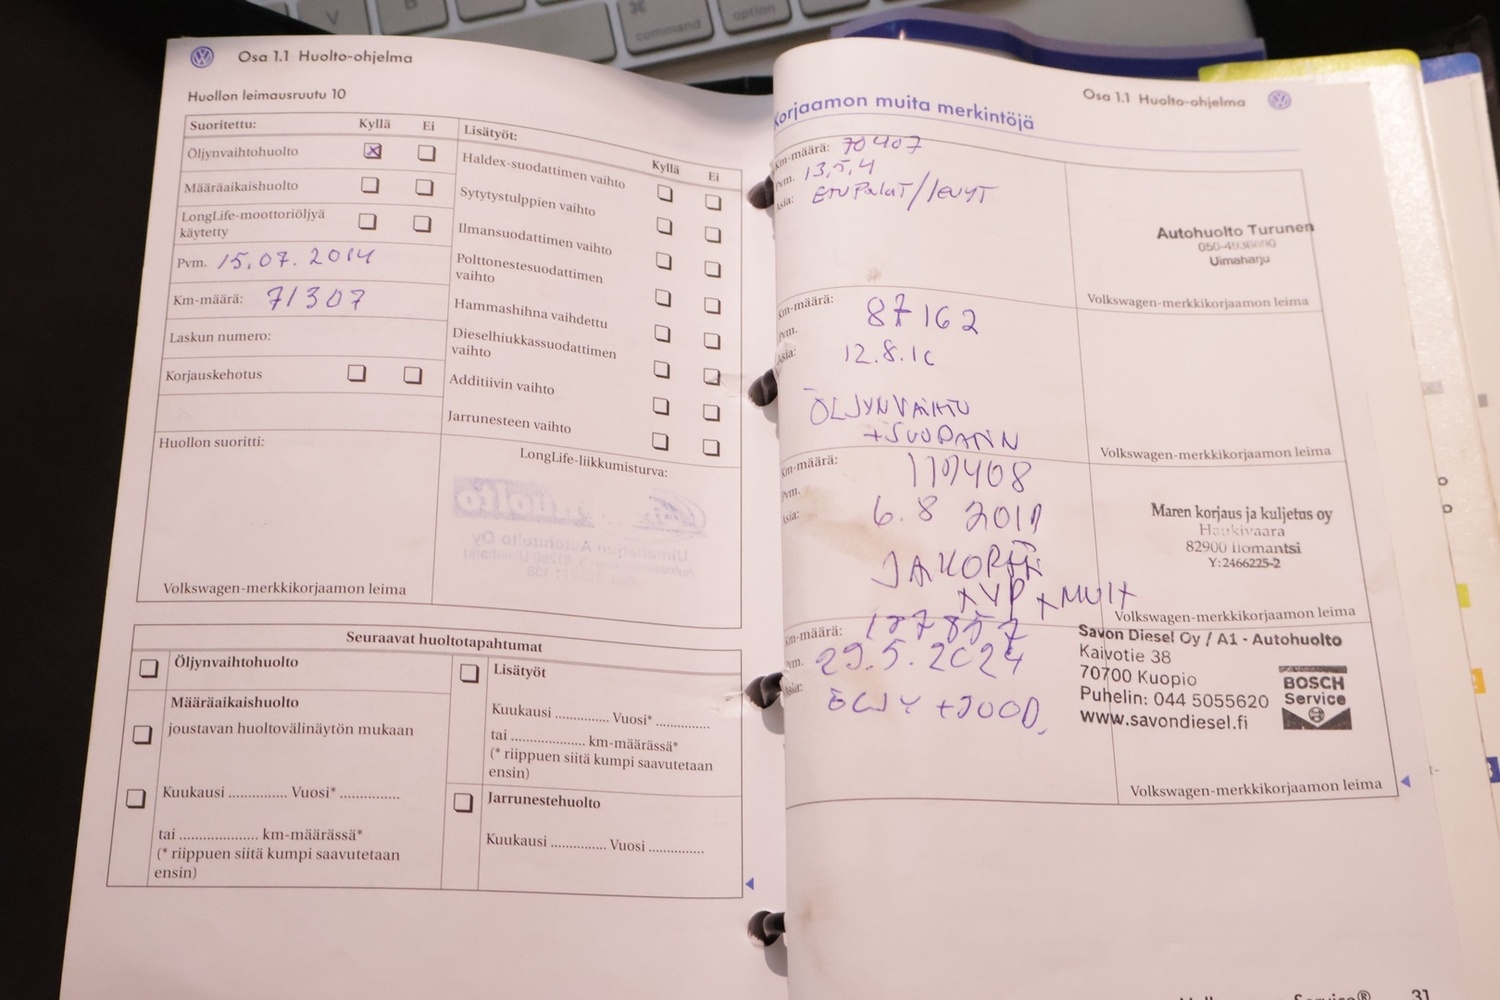 V
B
⌘
command
option
Osa 1.1 Huolto-ohjelma
Huollon leimausruutu 10
Suoritettu: Kyllä Ei
Öljynvaihtohuolto
Määräaikaishuolto
LongLife-moottoriöljyä
käytetty
Pvm. 15.07.2014
Km-määrä: 71307
Laskun numero:
Korjauskehotus
Huollon suoritti:
Volkswagen-merkkikorjaamon leima
Lisätyöt: Kyllä Ei
Haldex-suodattimen vaihto
Sytytystulppien vaihto
Ilmansuodattimen vaihto
Polttonestesuodattimen
vaihto
Hammashihna vaihdettu
Dieselhiukkassuodattimen
vaihto
Additiivin vaihto
Jarrunesteen vaihto
LongLife-liikkumisturva:
Seuraavat huoltotapahtumat
Öljynvaihtohuolto
Määräaikaishuolto
joustavan huoltovälinäytön mukaan
Kuukausi .............. Vuosi* ..............
tai .................... km-määrässä*
(* riippuen siitä kumpi saavutetaan
ensin)
Lisätyöt
Kuukausi ............. Vuosi* .............
tai .................. km-määrässä*
(* riippuen siitä kumpi saavutetaan
ensin)
Jarrunestehuolto
Kuukausi ............. Vuosi .............
Osa 1.1 Huolto-ohjelma
Korjaamon muita merkintöjä
Km-määrä: 70407
Pvm. 13.5.4
Asia: ETUPALAT/LEVYT
Autohuolto Turunen
Uimaharju
Volkswagen-merkkikorjaamon leima
Km-määrä: 87162
Pvm. 12.8.1c
Asia:
ÖLJYNVAIHTO
+SUODATIN
Volkswagen-merkkikorjaamon leima
Km-määrä:
Pvm. 6.8
Asia:
Maren korjaus ja kuljetus oy
Haukivaara
82900 Ilomantsi
Y:2466225-2
Volkswagen-merkkikorjaamon leima
Km-määrä: 187857
Pvm. 29.5.2024
Asia: ÖLJY +SUOD.
Savon Diesel Oy / A1 - Autohuolto
Kaivotie 38
70700 Kuopio
Puhelin: 044 5055620
www.savondiesel.fi
BOSCH
Service
Volkswagen-merkkikorjaamon leima
31